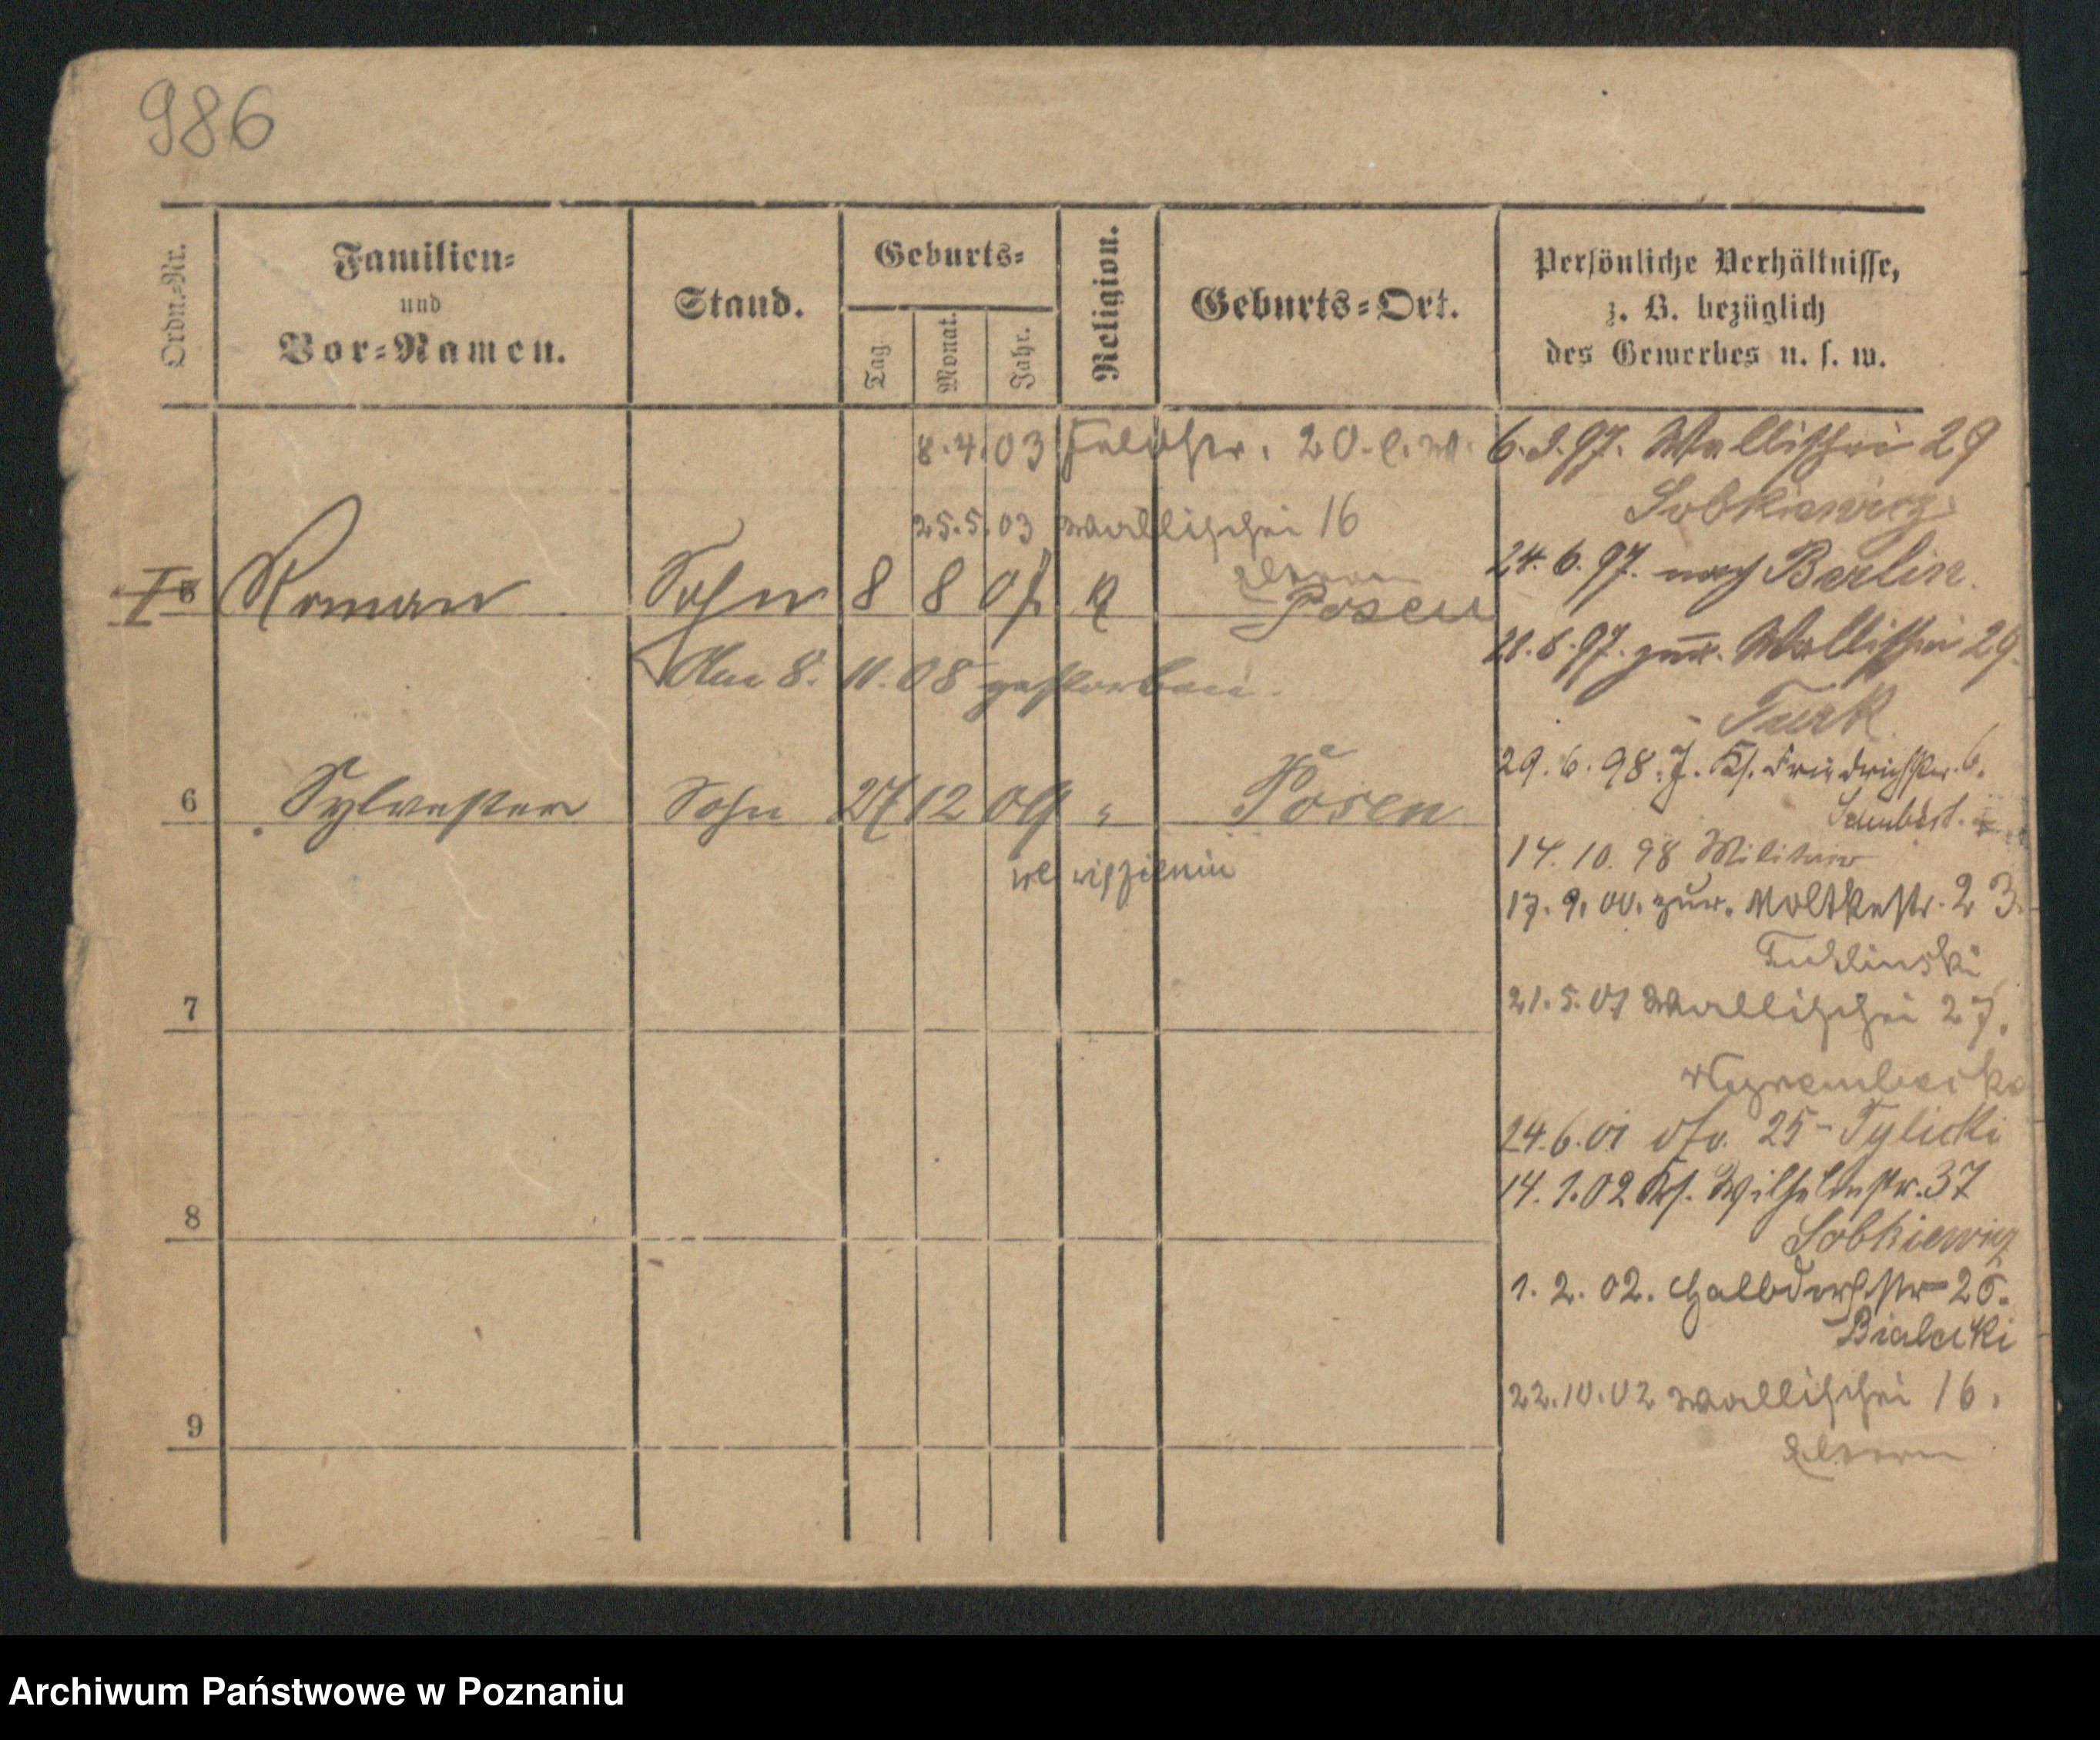 986
Ordn.-Nr.
Familien-
und
Vor-Namen.
Stand.
Geburts-
Tag.
Monat.
Jahr.
Religion.
Geburts-Ort.
Persönliche Verhältnisse,
z. B. bezüglich
des Gewerbes u. s. w.
8.4.03 20.
25.5.03 Wallischei 16
Eltern
5 Roman Sohn 8 8 07 k Posen
Am 8. 11. 08 gestorben.
6 Sylvester Sohn 27 12 09 " Posen
7
8
9
6.3.97. Wallischei 29
Sobkiewicz
24.6.97. nach Berlin.
28.8.97. zur. Wallischei 29.
Turk
29.6.98. Friedrichstr. 6.
14.10.98 Militair
17.9.00. zur. Moltkestr. 23.
21.5.01 Wallischei 27.
24.6.01 dto. 25 - Tylicki
14.1.02 Wilhelmstr. 37
Sobkiewicz
1.2.02. Halbdorfstr 26.
Bialecki
22.10.02 Wallischei 16.
Eltern
Archiwum Państwowe w Poznaniu